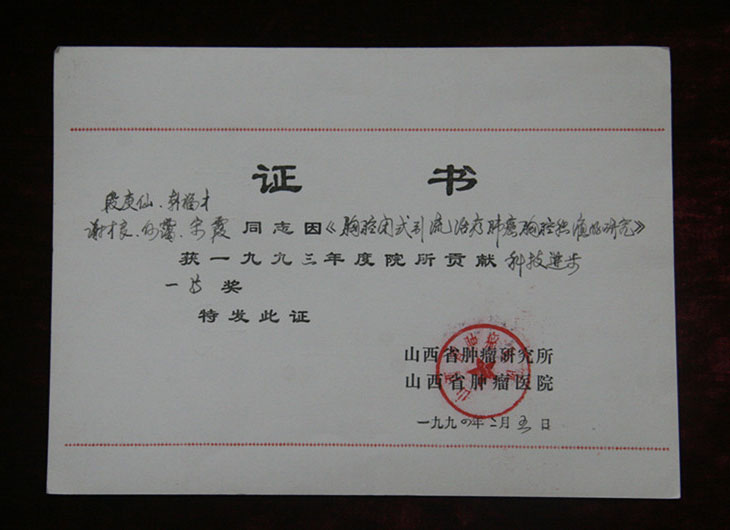 证 书
段庚仙、韩福才
谢才良、白露、宋霞同志因《胸腔闭式引流治疗肺癌胸腔积液临床研究》
获一九九三年度院所贡献科技进步
一等奖
特发此证
山西省肿瘤研究所
山西省肿瘤医院
一九九四年二月五日